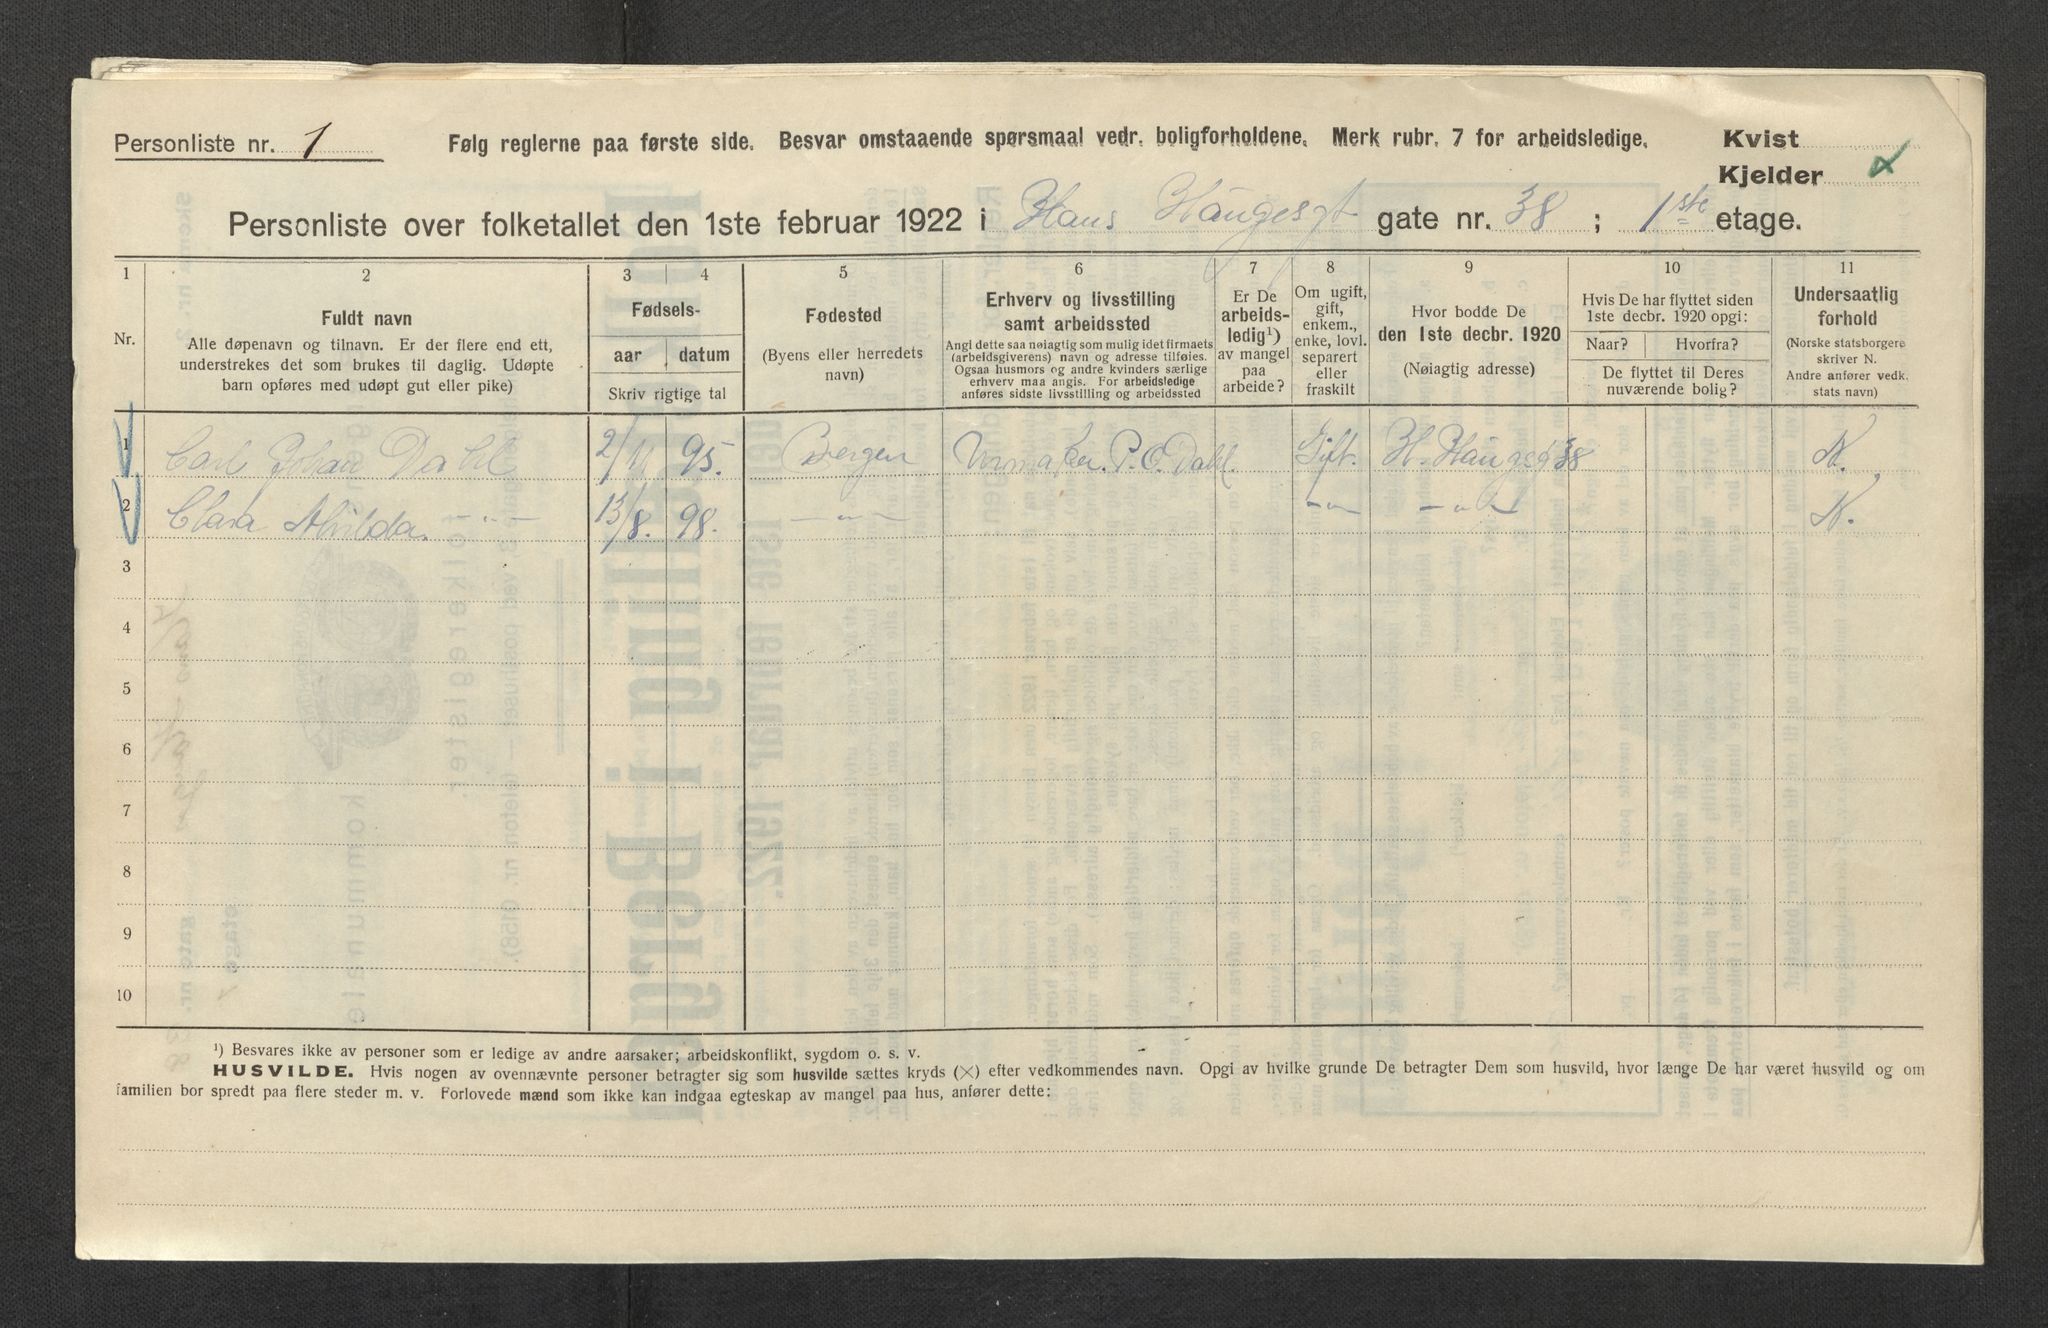 Personliste nr. 1 Følg reglerne paa første side. Besvar omstaaende spørsmaal vedr. boligforholdene. Merk rubr. 7 for arbeidsledige. Kvist
Kjelder
Personliste over folketallet den 1ste februar 1922 i Hans Haugesgt gate nr. 38 ; 1ste etage.
1 2 3 4 5 6 7 8 9 10 11
Nr.
Fuldt navn
Alle døpenavn og tilnavn. Er der flere end ett,
understrekes det som brukes til daglig. Udøpte
barn opføres med udøpt gut eller pike)
Fødsels-
aar datum
Skriv rigtige tal
Fødested
(Byens eller herredets
navn)
Erhverv og livsstilling
samt arbeidssted
Angi dette saa nøiagtig som mulig idet firmaets
(arbeidsgiverens) navn og adresse tilføies.
Ogsaa husmors og andre kvinders særlige
erhverv maa angis. For arbeidsledige
anføres sidste livsstilling og arbeidssted
Er De
arbeids-
ledig¹)
av mangel
paa
arbeide?
Om ugift,
gift,
enkem.,
enke, lovl.
separert
eller
fraskilt
Hvor bodde De
den 1ste decbr. 1920
(Nøiagtig adresse)
Hvis De har flyttet siden
1ste decbr. 1920 opgi:
Naar? Hvorfra?
De flyttet til Deres
nuværende bolig?
Undersaatlig
forhold
(Norske statsborgere
skriver N.
Andre anfører vedk.
stats navn)
1 Carl Johan Dahl 2/11 95. Bergen Urmaker. P. O. Dahl. Gift. H. Haugesg 38 N.
2 Clara Alvilda. -"- 13/8. 98. -"- -"- -"- N.
3
4
5
6
7
8
9
10
¹) Besvares ikke av personer som er ledige av andre aarsaker; arbeidskonflikt, sygdom o. s. v.
HUSVILDE. Hvis nogen av ovennævnte personer betragter sig som husvilde sættes kryds (×) efter vedkommendes navn. Opgi av hvilke grunde De betragter Dem som husvild, hvor længe De har været husvild og om
familien bor spredt paa flere steder m. v. Forlovede mænd som ikke kan indgaa egteskap av mangel paa hus, anfører dette: